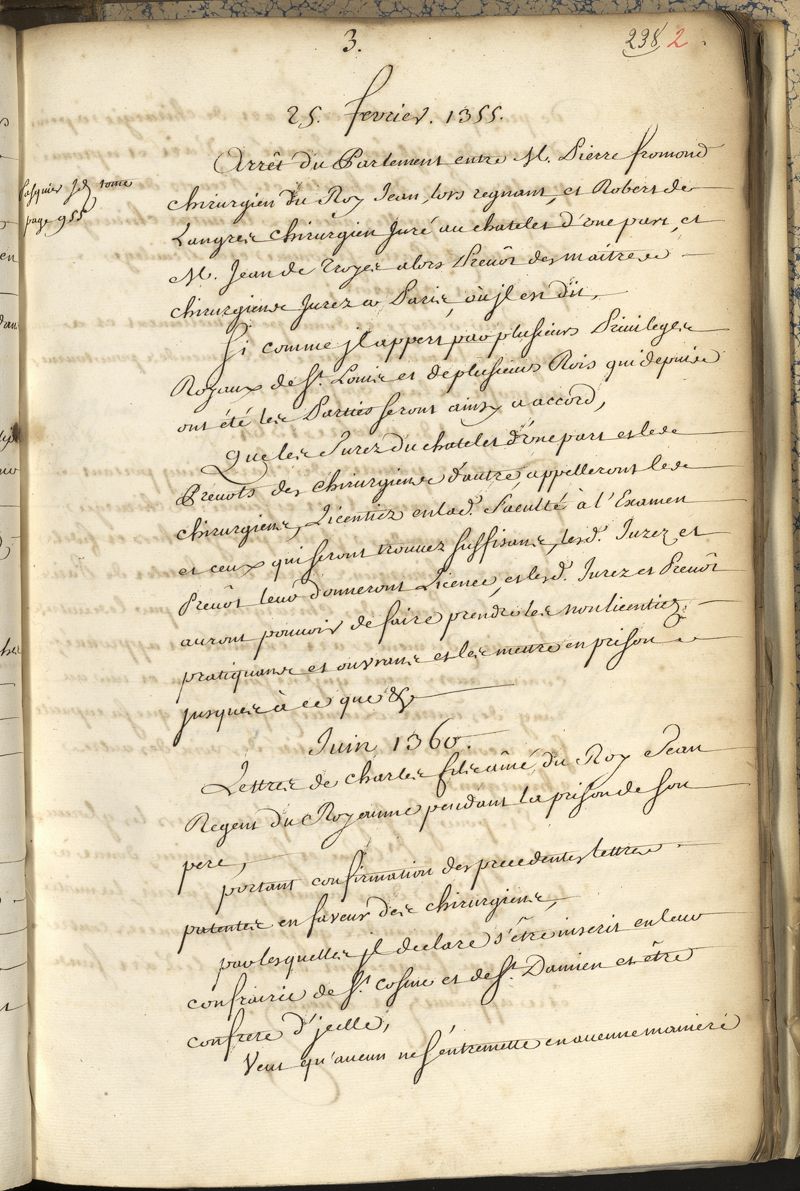 3.
238 2
25. fevrier. 1355.
Arrêt du Parlement entre M. Pierre fromond
chirurgien du Roy Jean lors regnant, et Robert de
Langres chirurgien Juré au chatelet d'une part, et
M. Jean de Troyes alors Prevôt des maitres
chirurgiens Jurez a Paris, où jl est dit,
Pasquier Jd. tome
page 955
Si comme jl appert par plusieurs Privileges
Royaux de St. Louis et de plusieurs Rois qui depuis
ont été les Parties seront ainsy a accord,
Que les Jurez du chatelet d'une part et les
Prevots des chirurgiens d'autre appelleront les
chirurgiens, Licentiez en lad. Faculté à l'Examen
et ceux qui seront trouvez suffisans, lesd. Jurez et
Prevôt leur donneront Licence, et lesd. Jurez et Prevôt
auront pouvoir de faire prendre les non licentiez
pratiquans et ouvrans et les mettre en prison
jusques à ce que &c
Juin 1360.
Lettres de charles fils aîné du Roy Jean
Regent du Royaume pendant la prison de son
pere,
portant confirmation des precedentes lettres
patentes en faveur des chirurgiens,
par lesquelles jl declare s'être inscrit en leur
confrairie de St. cosme et de St. Damien et être
confrere d'jcelle,
Veut qu'aucun ne s'entremette en aucune maniere